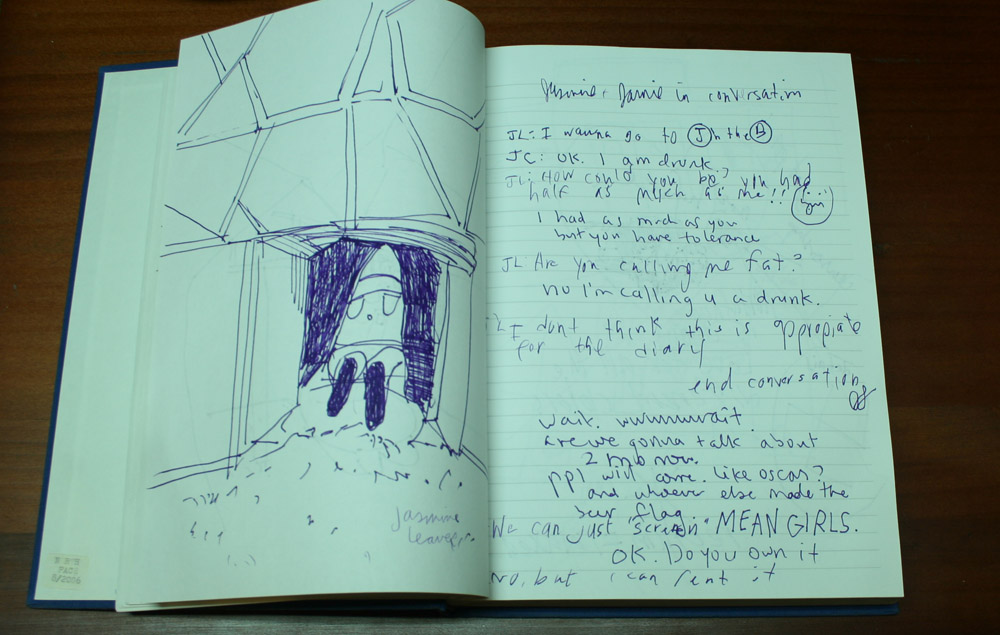 Jasmine
Jasmine + Jamie in conversation
JL: I wanna go to J in the B
JC: OK. I am drunk.
JL: How could you be? you had
half as much as me!!
I had as much as you
but you have tolerance
JL Are you calling me fat?
no I'm calling u a drunk.
JL I dont think this is appropiate
for the diary
end conversation
wait. wwmmwait.
are we gonna talk about
2 now.
ppl will come. like oscar?
and whoever else made the
flag.
We can just "screen" MEAN GIRLS.
OK. Do you own it
No, but i can rent it
PACK
8/2006